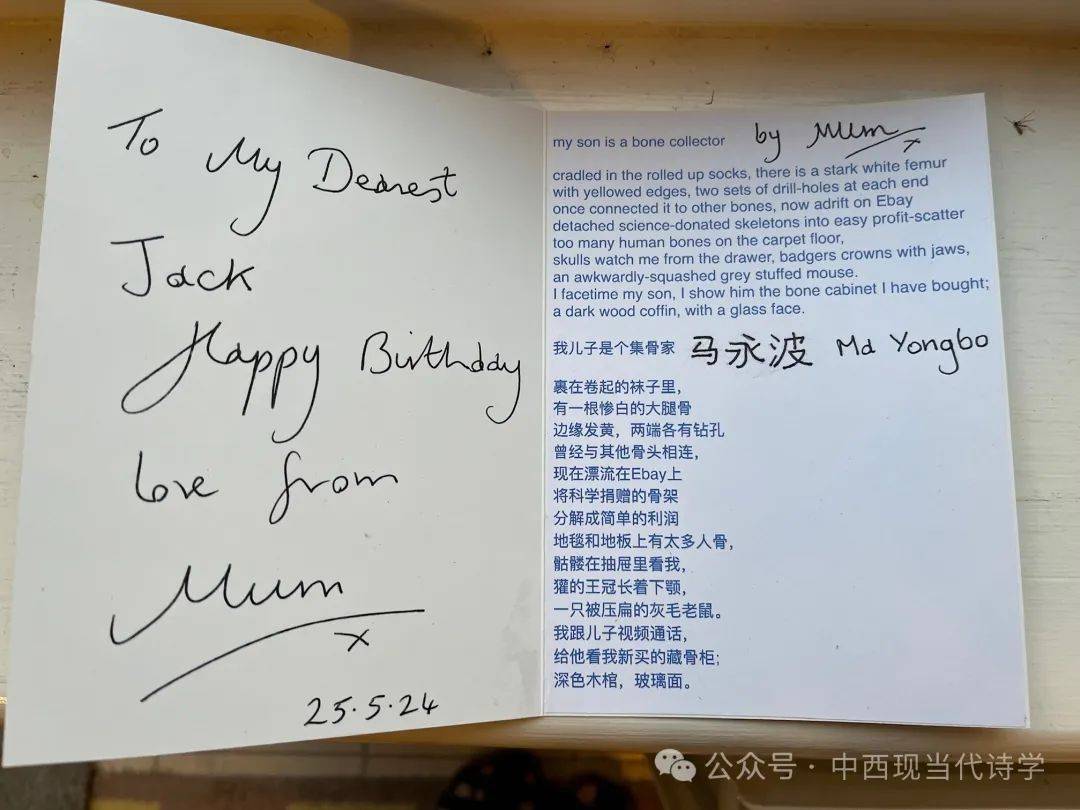 To My Dearest
Jack
Happy Birthday
love from
Mum
x
25.5.24
my son is a bone collector by Mum x
cradled in the rolled up socks, there is a stark white femur
with yellowed edges, two sets of drill-holes at each end
once connected it to other bones, now adrift on Ebay
detached science-donated skeletons into easy profit-scatter
too many human bones on the carpet floor,
skulls watch me from the drawer, badgers crowns with jaws,
an awkwardly-squashed grey stuffed mouse.
I facetime my son, I show him the bone cabinet I have bought;
a dark wood coffin, with a glass face.
我儿子是个集骨家 马永波 Ma Yongbo
裹在卷起的袜子里，
有一根惨白的大腿骨
边缘发黄，两端各有钻孔
曾经与其他骨头相连，
现在漂流在Ebay上
将科学捐赠的骨架
分解成简单的利润
地毯和地板上有太多人骨，
骷髅在抽屉里看我，
獾的王冠长着下颚，
一只被压扁的灰毛老鼠。
我跟儿子视频通话，
给他看我新买的藏骨柜；
深色木棺，玻璃面。
公众号 · 中西现当代诗学